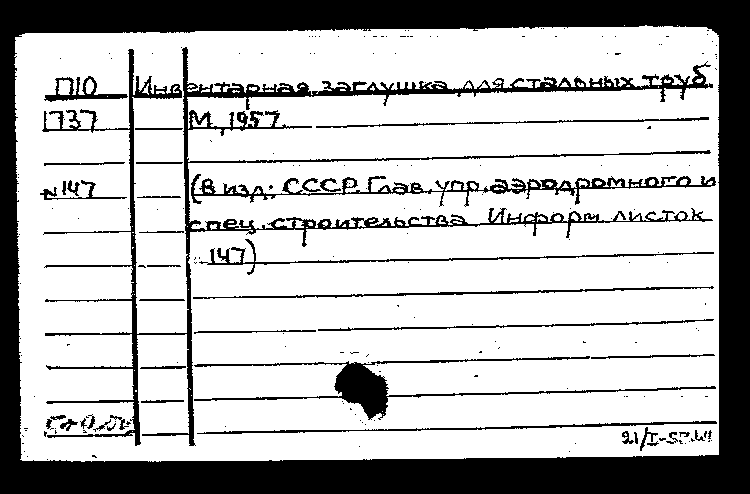 П10 Инвентарная заглушка для стальных труб.
1737 М., 1957.
№147 (В изд: СССР. Глав. упр. аэродромного и
спец. строительства Информ листок
147)